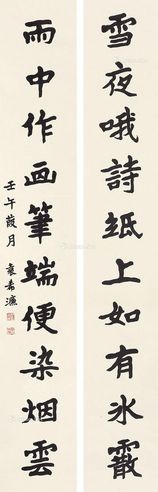 雪夜哦詩紙上如有氷霰
雨中作画筆端便染烟雲
壬午葭月 袁希濂